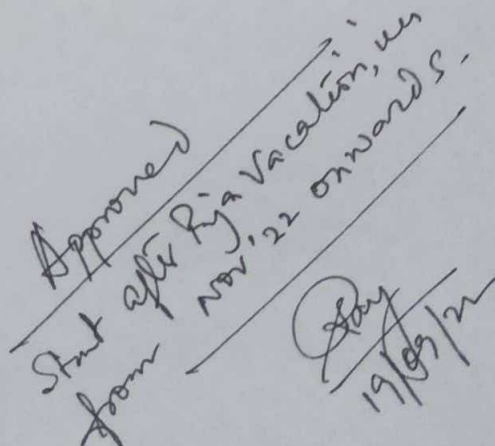 Approved
Start after Puja Vacation, ie,
from Nov'22 onwards.
19/09/22